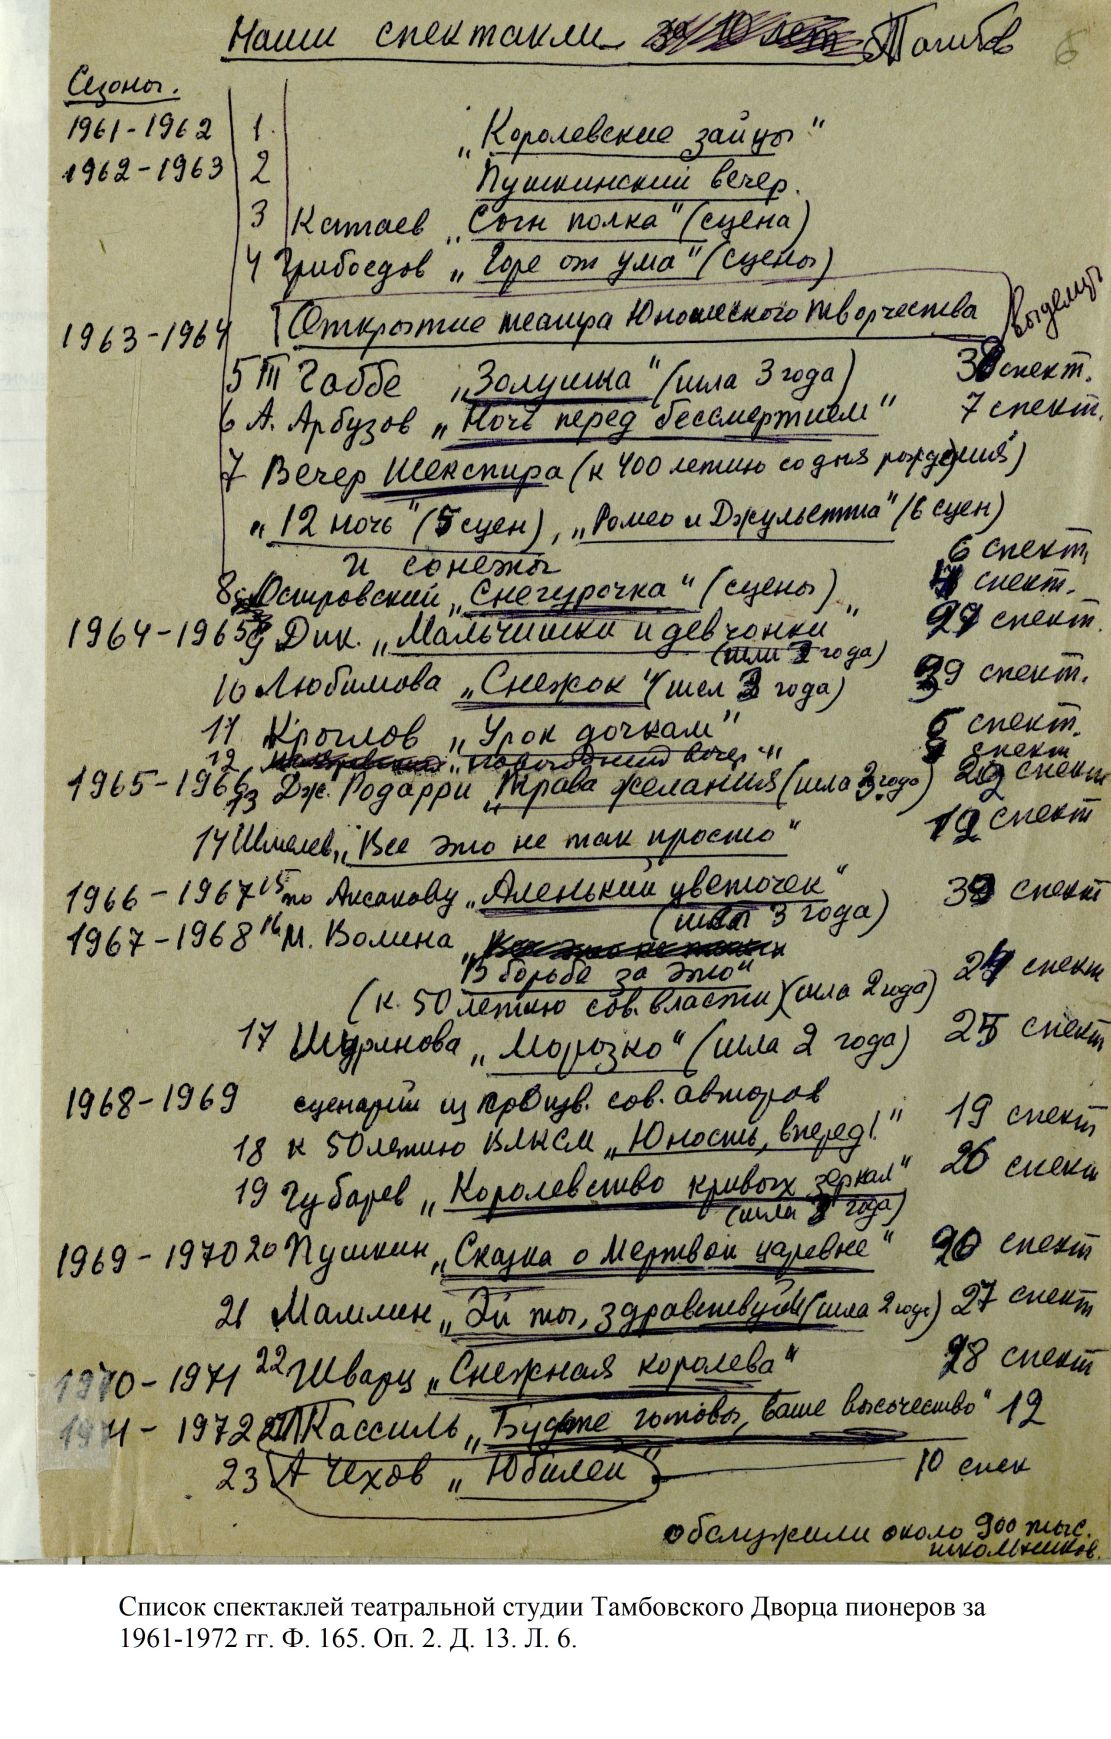 Наши спектакли
Сезоны.
1961-1962 1. „Королевские зайцы"
1962-1963 2 Пушкинский вечер.
3 Катаев „Сын полка" (сцена)
4 Грибоедов „Горе от ума" (сцены)
1963-1964 Открытие театра Юношеского творчества
5 Т Габбе „Золушка" (шла 3 года) спект.
6 А. Арбузов „Ночь перед бессмертием" 7 спект.
7 Вечер Шекспира (к 400 летию со дня рождения)
„12 ночь" (5 сцен), „Ромео и Джульетта" (6 сцен)
и сонеты 6 спект.
8 Островский „Снегурочка" (сцены) спект.
1964-1965 9 Дик. „Мальчишки и девчонки" спект.
(шли года)
10 Любимова „Снежок" (шел 3 года) 39 спект.
11 Крылов „Урок дочкам" 6 спект.
12 „Новогодний вечер" спект
1965-1966 13 Дж. Родарри „Трава желания" (шла года) спект
14 Шмелев, „Все это не так просто" 12 спект
1966-1967 15 по Аксакову „Аленький цветочек" 39 спект
(шла 3 года)
1967-1968 16 М. Волина
„В борьбе за это" спект
(к 50 летию сов. власти) (шла 2 года)
17 „Морозко" (шла 2 года) 25 спект
1968-1969 сценарий из произв. сов. авторов
18 к 50летию ВЛКСМ „Юность, вперед!" 19 спект
19 Губарев „Королевство кривых зеркал" 26 спект
(шла года)
1969-1970 20 Пушкин „Сказка о мертвой царевне" 20 спект
21 Машлин „Эй ты, здравствуй" (шла 2 года) 27 спект
1970-1971 22 Шварц „Снежная королева" 28 спект
1971-1972 Кассиль „Будьте готовы, ваше высочество" 12
23 А Чехов „Юбилей" 10 спек
обслужили около 900 тыс.
школьников.
Список спектаклей театральной студии Тамбовского Дворца пионеров за
1961-1972 гг. Ф. 165. Оп. 2. Д. 13. Л. 6.